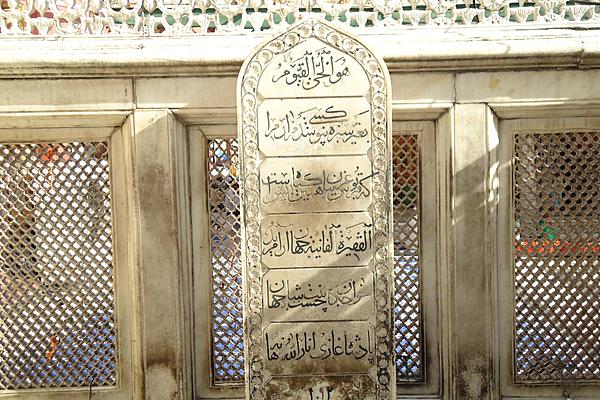 هو الحی القیوم
بغیر سبزه نپوشد کسی مزار مرا
که قبر پوش غریبان همین گیاه بس است
الفقیرة الفانیة جهان آرا مرید
خواجگان چشت بنت شاهجهان
پادشاه غازی انار الله برهانه
۱۰۹۲